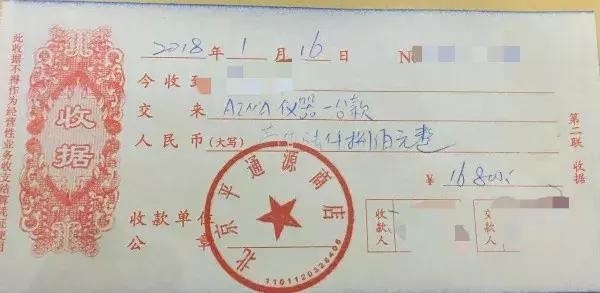 收据
此收据不得作为经营性业务收支结算凭证使用
2018年1月16日 No
今收到
交来 AZNA仪器一台款
人民币(大写) 陆仟捌佰元整
¥ 16800
第二联 收据
收款单位
公章
收款人
交款人
北京平通源商店
1101120328406